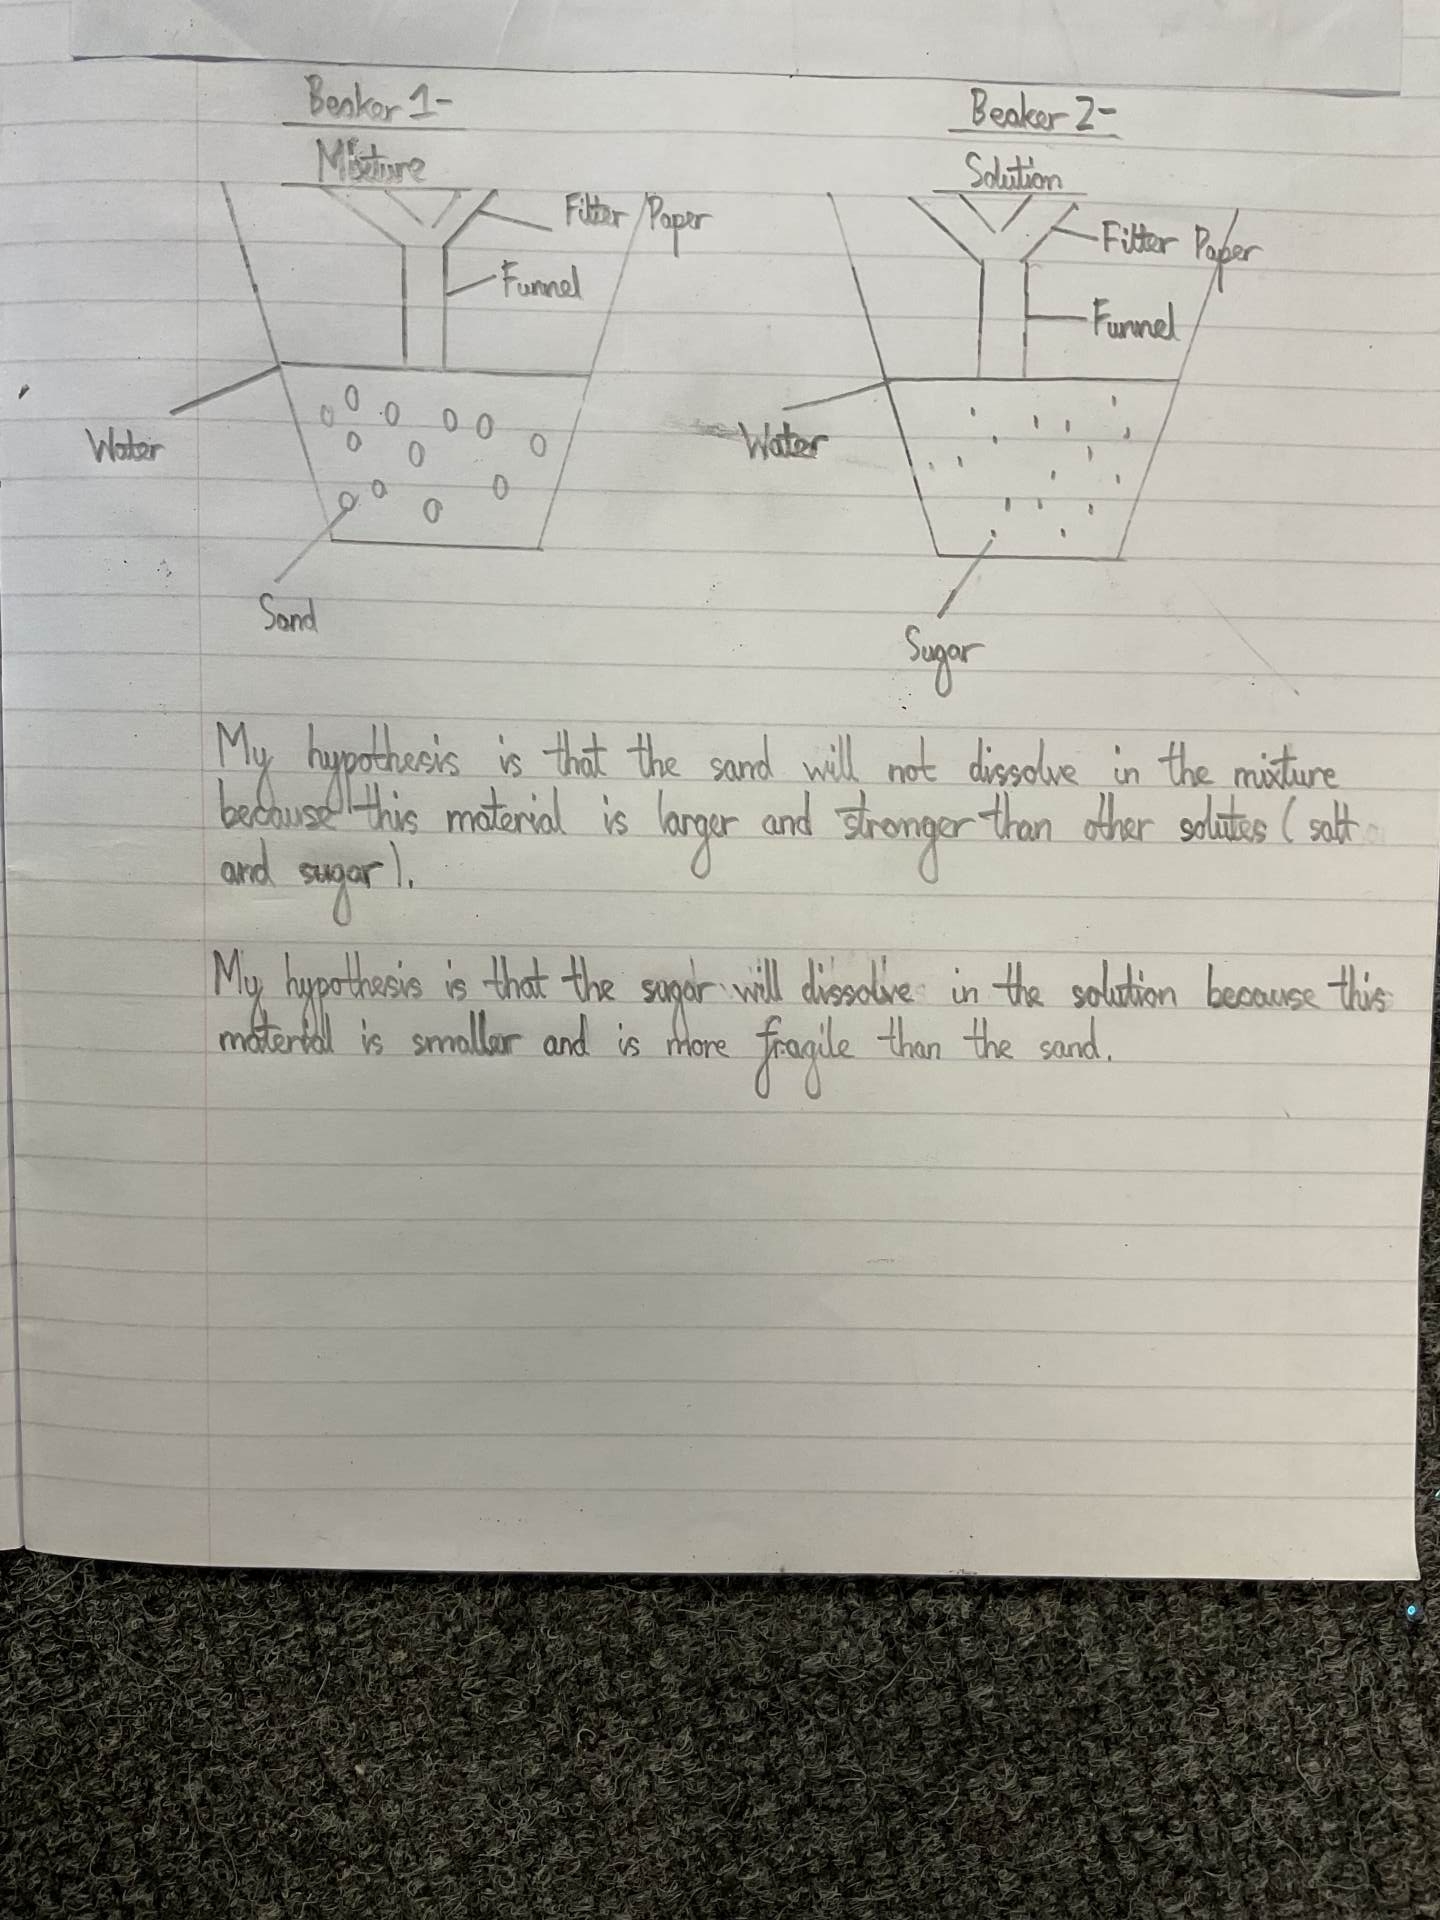 Beaker 1-
Mixture
Filter Paper
Funnel
Water
Sand
Beaker 2-
Solution
Filter Paper
Funnel
Water
Sugar
My hypothesis is that the sand will not dissolve in the mixture
because this material is larger and stronger than other solutes (salt
and sugar).
My hypothesis is that the sugar will dissolve in the solution because this
material is smaller and is more fragile than the sand.